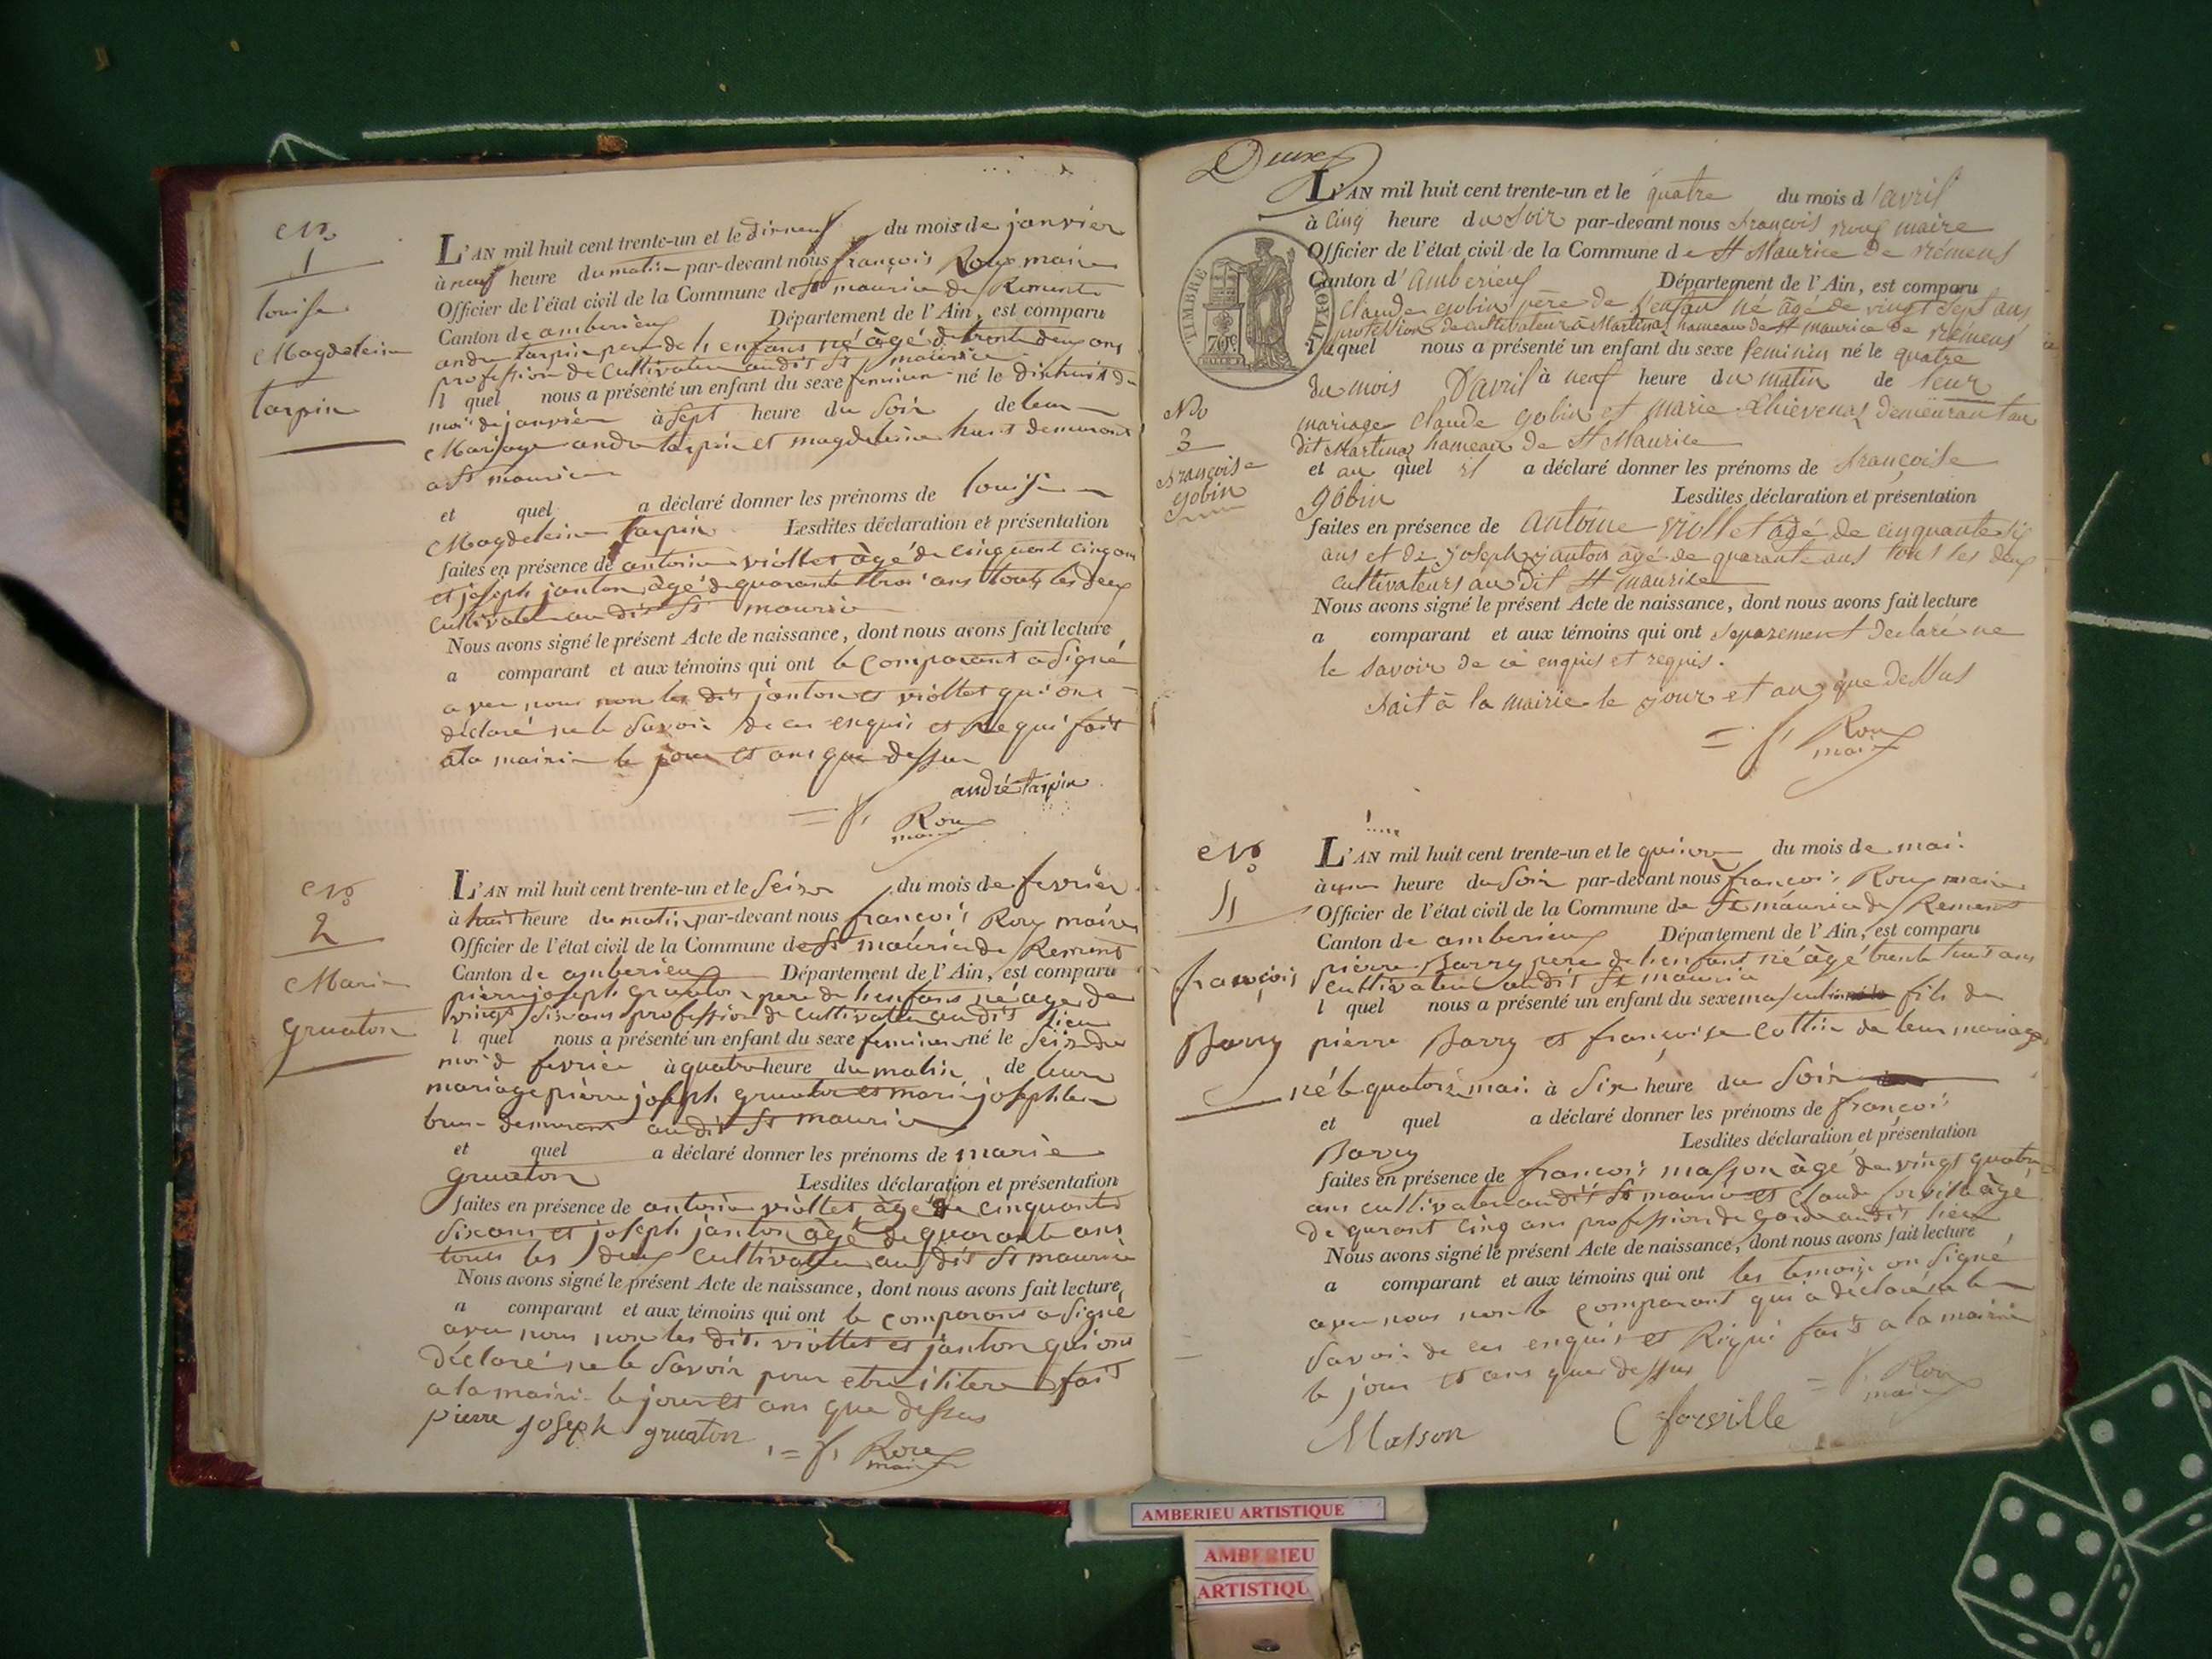 No
1
Louise
Magdeleine
tarpin
L'AN mil huit cent trente-un et le dixneuf du mois de janvier
à neuf heure du matin par-devant nous françois Roux maire
Officier de l'état civil de la Commune de St maurice de Remens
Canton de amberieux Département de l'Ain, est comparu
andre tarpin pere de l'enfans né âgé de trente deux ans
profession de Cultivateur audit St maurice
l quel nous a présenté un enfant du sexe feminin né le dixhuit du
mois de janvier à sept heure du soir de leur
Mariage andre tarpin et magdeleine demurant
a St maurice
et quel a déclaré donner les prénoms de louise
Magdeleine tarpin Lesdites déclaration et présentation
faites en présence de antoine viollet âgé de cinquant cinq ans
et joseph janton âgé de quarante trois ans touts les deux
cultivateur au dit St maurice
Nous avons signé le présent Acte de naissance, dont nous avons fait lecture
a comparant et aux témoins qui ont le comparant a signé
avec nous non les dits janton et viollet qui ont
déclaré ne le savoir de ces enquis et Requi fait
a la mairie le jour et ans que dessus
andré tarpin
= f, Roux
maire
No
2
Marie
gruaton
L'AN mil huit cent trente-un et le seize du mois de fevrier
à huit heure du matin par-devant nous françois Roux maire
Officier de l'état civil de la Commune de St maurice de Remens
Canton de amberieux Département de l'Ain, est comparu
pierre joseph gruaton pere de l'enfans né âge de
vingt six ans profession de cultivateur au dit lieu
l quel nous a présenté un enfant du sexe feminin né le seize du
moi de fevrier à quatre heure du matin de leur
mariage pierre joseph gruaton et marie josephte
brun demurant au dit St maurice
et quel a déclaré donner les prénoms de marie
gruaton Lesdites déclaration et présentation
faites en présence de antoine viollet âgé de cinquante
six ans et joseph janton âgé de quarante ans
touts les deux cultivateur au dit St maurice
Nous avons signé le présent Acte de naissance, dont nous avons fait lecture
a comparant et aux témoins qui ont le comparant a signé
avec nous non les dits viollet et janton qui ont
déclaré ne le savoir pour etre ilitere fait
a la mairie le jour et ans que dessus
pierre joseph gruaton = f, Roux
maire
Deux
L'AN mil huit cent trente-un et le quatre du mois d'avril
à cinq heure du soir par-devant nous françois roux maire
Officier de l'état civil de la Commune de St Maurice de rémens
Canton d'amberieux Département de l'Ain, est comparu
Claude gobin père de l'enfan né âgé de vingt sept ans
profession de cultivateur à Martinaz hameau de St maurice de rémens
l quel nous a présenté un enfant du sexe feminin né le quatre
du mois d'avril à neuf heure du matin de leur
mariage Claude gobin et marie thievenaz demeurant au
dit Martinaz hameau de St Maurice
et au quel il a déclaré donner les prénoms de françoise
gobin Lesdites déclaration et présentation
faites en présence de antoine viollet âgé de cinquante six
ans et de joseph janton âgé de quarante ans tous les deux
cultivateurs au dit St maurice
Nous avons signé le présent Acte de naissance, dont nous avons fait lecture
a comparant et aux témoins qui ont séparement déclaré ne
le savoir de ce enquis et requis.
fait à la mairie le jour et an que dessus
= f, Roux
maire
TIMBRE ROYAL
70c
No
3
françoise
gobin
No
4
françois
Barry
L'AN mil huit cent trente-un et le quinze du mois de mai.
à une heure du soir par-devant nous françois Roux maire
Officier de l'état civil de la Commune de St maurice de Remens
Canton de amberieux Département de l'Ain, est comparu
pierre Barry pere de l'enfant né âgé trente huit ans
cultivateur au dit St maurice
l quel nous a présenté un enfant du sexe masculin fils de
pierre Barry et françoise Cottin de leur mariage
né le quatorze mai à six heure du soir
et quel a déclaré donner les prénoms de françois
Barry Lesdites déclaration et présentation
faites en présence de françois masson âgé de vingt quatre
ans cultivateur au dit St maurice et Claude forville âgé
de qurant cinq ans profession de garde au dit lieu
Nous avons signé le présent Acte de naissance, dont nous avons fait lecture
a comparant et aux témoins qui ont les temoin on signé
avec nous non le comparant qui a déclaré ne le
savoir de ces enquis et Riqui fait a la mairie
le jour et ans que dessus
= f, Roux
maire
Masson C forville
AMBERIEU ARTISTIQUE
AMBERIEU
ARTISTIQU